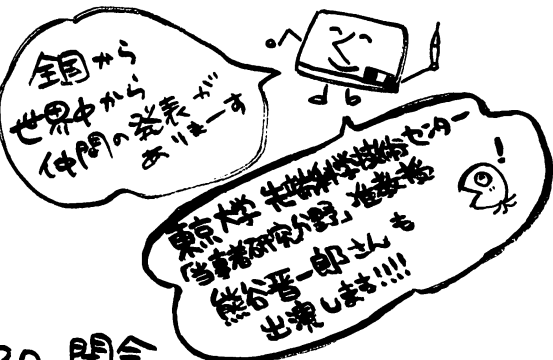 全国から
世界中から
仲間の発表が
ありまーす
東京大学 先端科学技術センター
「当事者研究分野」准教授
熊谷晋一郎さんも
出演します!!!!
!
30 開会